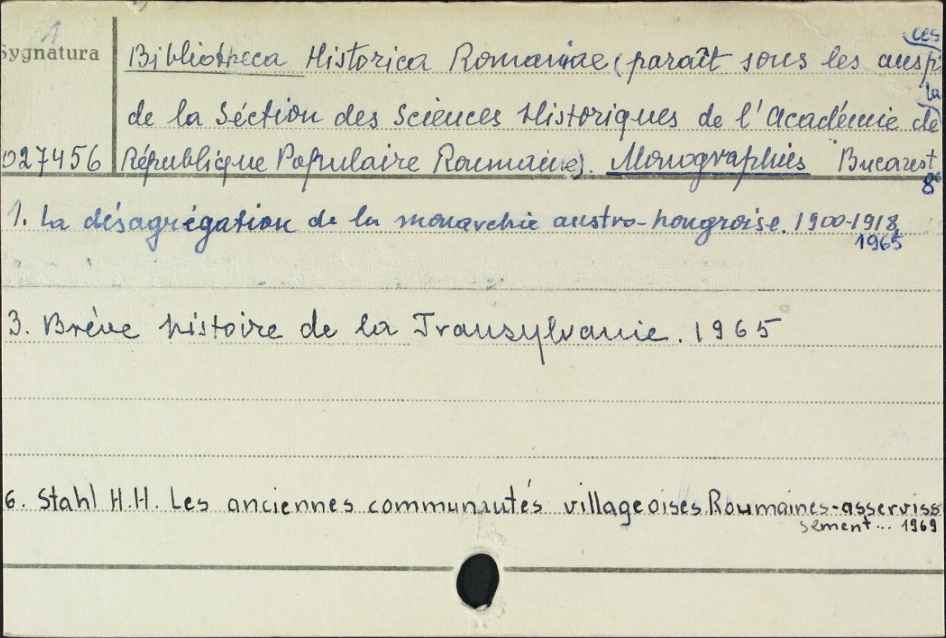 1
Sygnatura
Bibliotheca Historica Romaniae (paraît sous les auspi
ces
de la Séction des Sciences Historiques de l'Académie de
la
027456 République Populaire Roumaine). Monographies Bucarest
8°
1. La désagrégation de la monarchie austro-hongroise. 1900-1918,
1965
3. Brève histoire de la Transylvanie. 1965
6. Stahl H.H. Les anciennes communautés villageoises Roumaines-asserviss
sement... 1969